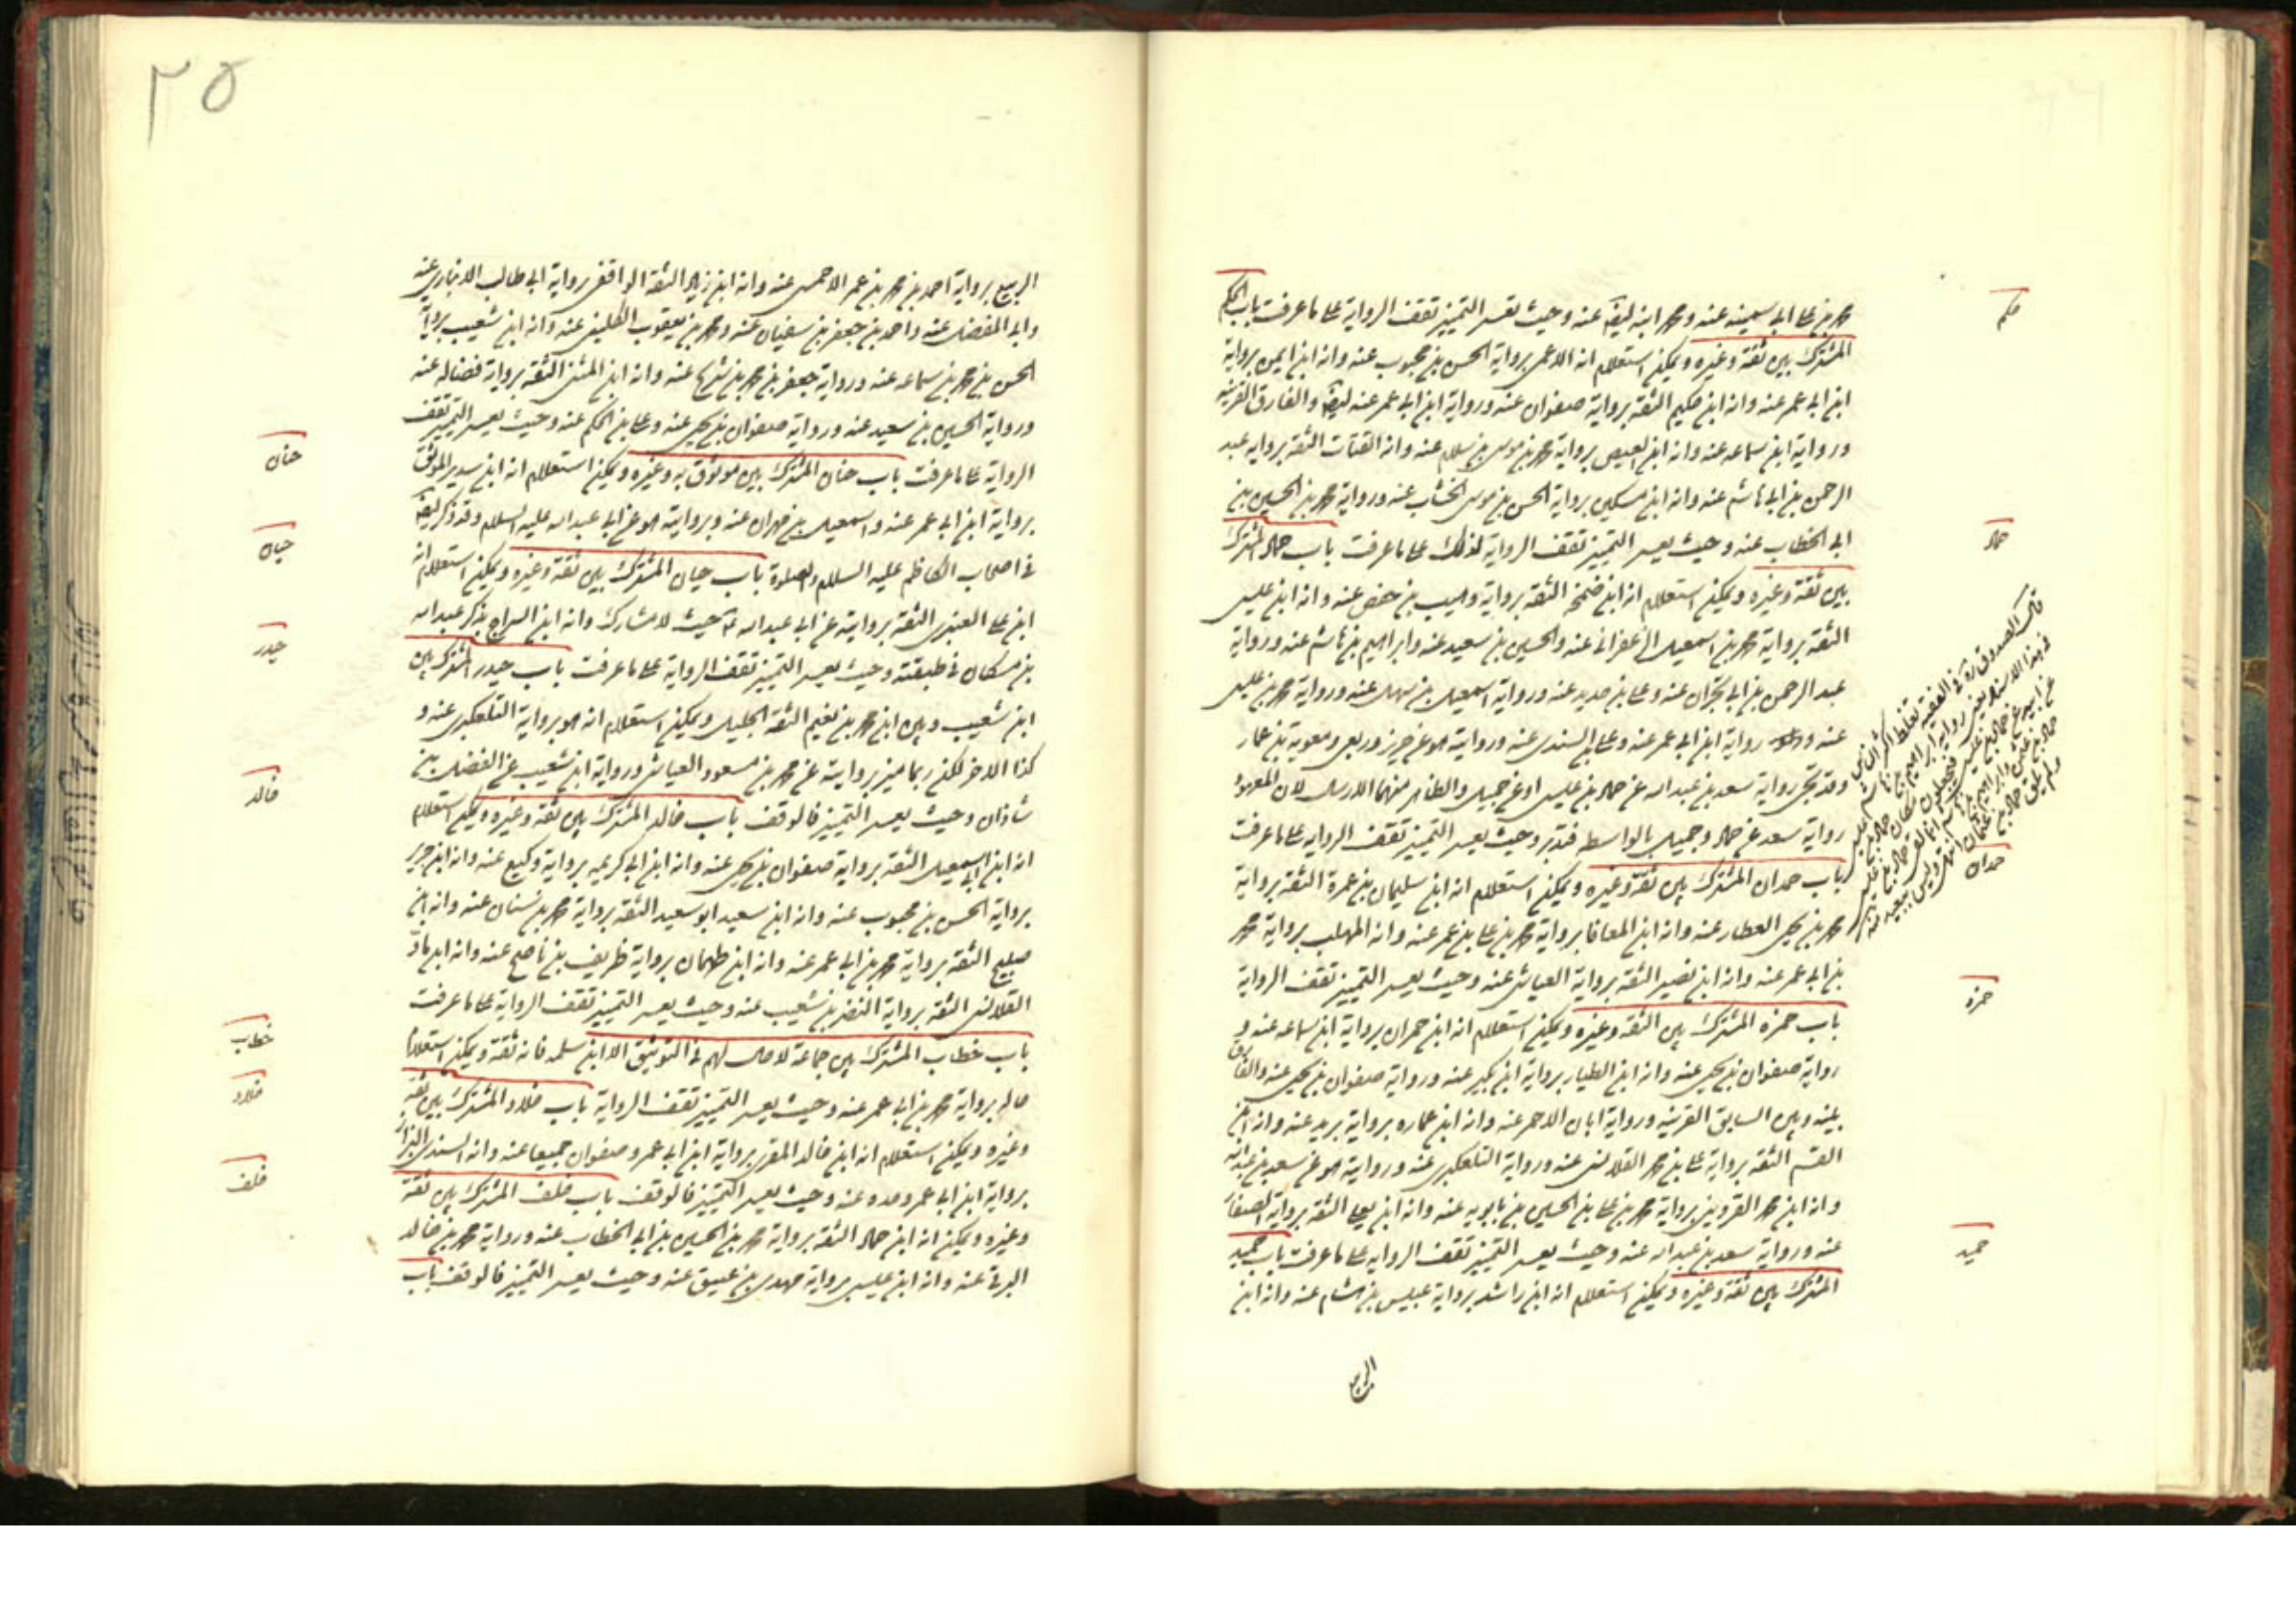 محمد بن علي ابي سمينه عنه ومحمد ابنه ليقه عنه وحيث تعسر التميز تقف الرواية على ما عرفت باب الحكم
المشترك بين ثقة وغيره ويمكن استعلام انه الاعمى برواية الحسن بن محبوب عنه وانه ابن ايمن برواية
ابن ابي عمير عنه وانه ابن حكيم الثقه برواية صفوان عنه ورواية ابن ابي عمير عنه والفارق القرينه
ورواية ابن سماعه عنه وانه ابن العيص برواية محمد بن موسى بن سلام عنه وانه القتات الثقه برواية عبد
الرحمن بن ابي هاشم عنه وانه ابن مسكين برواية الحسن بن موسى الخشاب عنه ورواية محمد بن الحسين بن
ابي الخطاب عنه وحيث يعسر التمييز تقف الرواية لذلك على ما عرفت باب حماد المشترك
بين ثقة وغيره ويمكن استعلام انه ابن ضمخة الثقه برواية وهيب بن حفص عنه وانه ابن عليسى
الثقه برواية محمد بن اسمعيل الزعفراني عنه والحسين بن سعيد عنه وابراهيم بن هاشم عنه ورواية
عبد الرحمن بن ابي نجران عنه وعلي بن حديد عنه ورواية اسمعيل بن سهل عنه ورواية محمد بن عيسى
عنه ورواية ابن ابي عمير عنه وعلي بن السندي عنه وروايته هو عن حريز وربعي ومعوية بن عمار
وقد تجئ رواية سعد بن عبد الله عن حماد بن عيسى او عن جميل والظاهر منهما الارسال لان المعهود
رواية سعد عن حماد وجميل بالواسطه فتدبر وحيث يعسر التمييز تقف الرواية على ما عرفت
باب حمدان المشترك بين ثقة وغيره ويمكن استعلام انه ابن سليمان بن عمرة الثقه برواية
محمد بن يحيى العطار عنه وانه ابن المعافا برواية محمد بن علي بن عمر عنه وانه المهلب برواية محمد
بن ابي عمير عنه وانه ابن نصير الثقه برواية العياشي عنه وحيث يعسر التمييز تقف الرواية
باب حمزه المشترك بين الثقه وغيره ويمكن استعلام انه ابن حمران برواية ابن سماعه عنه و
رواية صفوان بن يحيى عنه وانه ابن الطيار برواية ابن بكير عنه ورواية صفوان بن يحيى عنه والفارق
بينه وبين السابق القرينه ورواية ابان الاحمر عنه وانه ابن عماره برواية بريد عنه وانه ابن
القسم الثقه برواية علي بن محمد القلانسي عنه ورواية التلعكبري عنه وروايته هو عن سعد بن عبد الله
وانه ابن محمد القزويني برواية محمد بن علي بن الحسين بن بابويه عنه وانه ابن يعلى الثقه برواية الصفار
عنه ورواية سعد بن عبد الله عنه وحيث يعسر التمييز تقف الرواية على ما عرفت باب حميد
المشترك بين ثقة وغيره ويمكن استعلام انه ابن راشد برواية عبيس بن هشام عنه وانه ابن
الربيع
حكم
حماد
قال الصدوق ره في الفقيه يغلط اكثر الناس
في هذا الاسناد
حمدان
حمزه
حميد
٢٥
الربيع برواية احمد بن محمد بن عمر الاحمسي عنه وانه ابن زياد الثقة الواقفي برواية ابي طالب الانباري عنه
وابي المفضل عنه واحمد بن جعفر بن سفيان عنه ومحمد بن يعقوب الكليني عنه وانه ابن شعيب برواية
الحسن بن محمد بن سماعه عنه ورواية جعفر بن محمد بن شريح عنه وانه ابن المثنى الثقه برواية فضاله عنه
ورواية الحسين بن سعيد عنه ورواية صفوان بن يحيى عنه وعلي بن الحكم عنه وحيث يعسر التمييز تقف
الرواية على ما عرفت باب حنان المشترك بين موثوق به وغيره ويمكن استعلام انه ابن سدير الموثق
برواية ابن ابي عمير عنه واسمعيل بن مهران عنه وبروايته هو عن ابي عبد الله عليه السلام وقد ذكر ليقه
في اصحاب الكاظم عليه السلام والصلوة باب حيان المشترك بين ثقة وغيره ويمكن استعلام انه
ابن علي العنزي الثقه بروايته عن ابي عبد الله ع حيث لا مشارك وانه ابن السراج بذكر عبد الله
بن مسكان في طبقته وحيث يعسر التمييز تقف الرواية على ما عرفت باب حيدر المشترك بين
ابن شعيب وبين ابن محمد بن نعيم الثقة الجليل ويمكن استعلام انه هو برواية التلعكبري عنه و
كذا الاخر لكن ربما ميز بروايته عن محمد بن مسعود العياشي ورواية ابن شعيب عن الفضل بن
شاذان وحيث يعسر التمييز فالوقف باب خالد المشترك بين ثقة وغيره ويمكن استعلام
انه ابن ابي اسمعيل الثقه برواية صفوان بن يحيى عنه وانه ابن ابي كريمه برواية وكيع عنه وانه ابن جرير
برواية الحسن بن محبوب عنه وانه ابن سعيد ابو سعيد الثقه برواية محمد بن سنان عنه وانه ابن
صبيح الثقه برواية محمد بن ابي عمير عنه وانه ابن طهمان برواية ظريف بن ناصح عنه وانه ابن ماد
القلانسي الثقه برواية النضر بن شعيب عنه وحيث يعسر التمييز تقف الرواية على ما عرفت
باب خطاب المشترك بين جماعة لا حال لهم في التوثيق الا ابن سلمه فانه ثقة ويمكن استعلام
حاله برواية محمد بن ابي عمير عنه وحيث يعسر التمييز تقف الرواية باب خلاد المشترك بين ثقة
وغيره ويمكن استعلام انه ابن خالد المقري برواية ابن ابي عمير وصفوان جميعا عنه وانه السندي البزاز
برواية ابن ابي عمير وحده عنه وحيث يعسر التمييز فالوقف باب خلف المشترك بين ثقة
وغيره ويمكن انه ابن حماد الثقه برواية محمد بن الحسين بن ابي الخطاب عنه ورواية محمد بن خالد
البرقي عنه وانه ابن عيسى برواية مهدي بن عتيق عنه وحيث يعسر التمييز فالوقف باب
حنان
حيان
حيدر
خالد
خطاب
خلاد
خلف